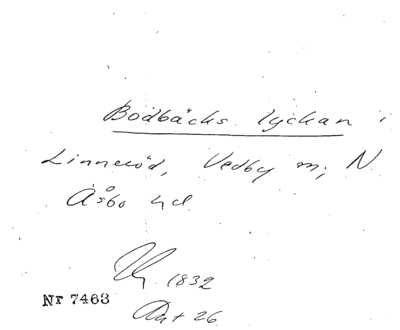 Bodbäcks lyckan i
Linneröd, Vedby m; N
Åsbo hd
1832
Nr 7463
Akt 26